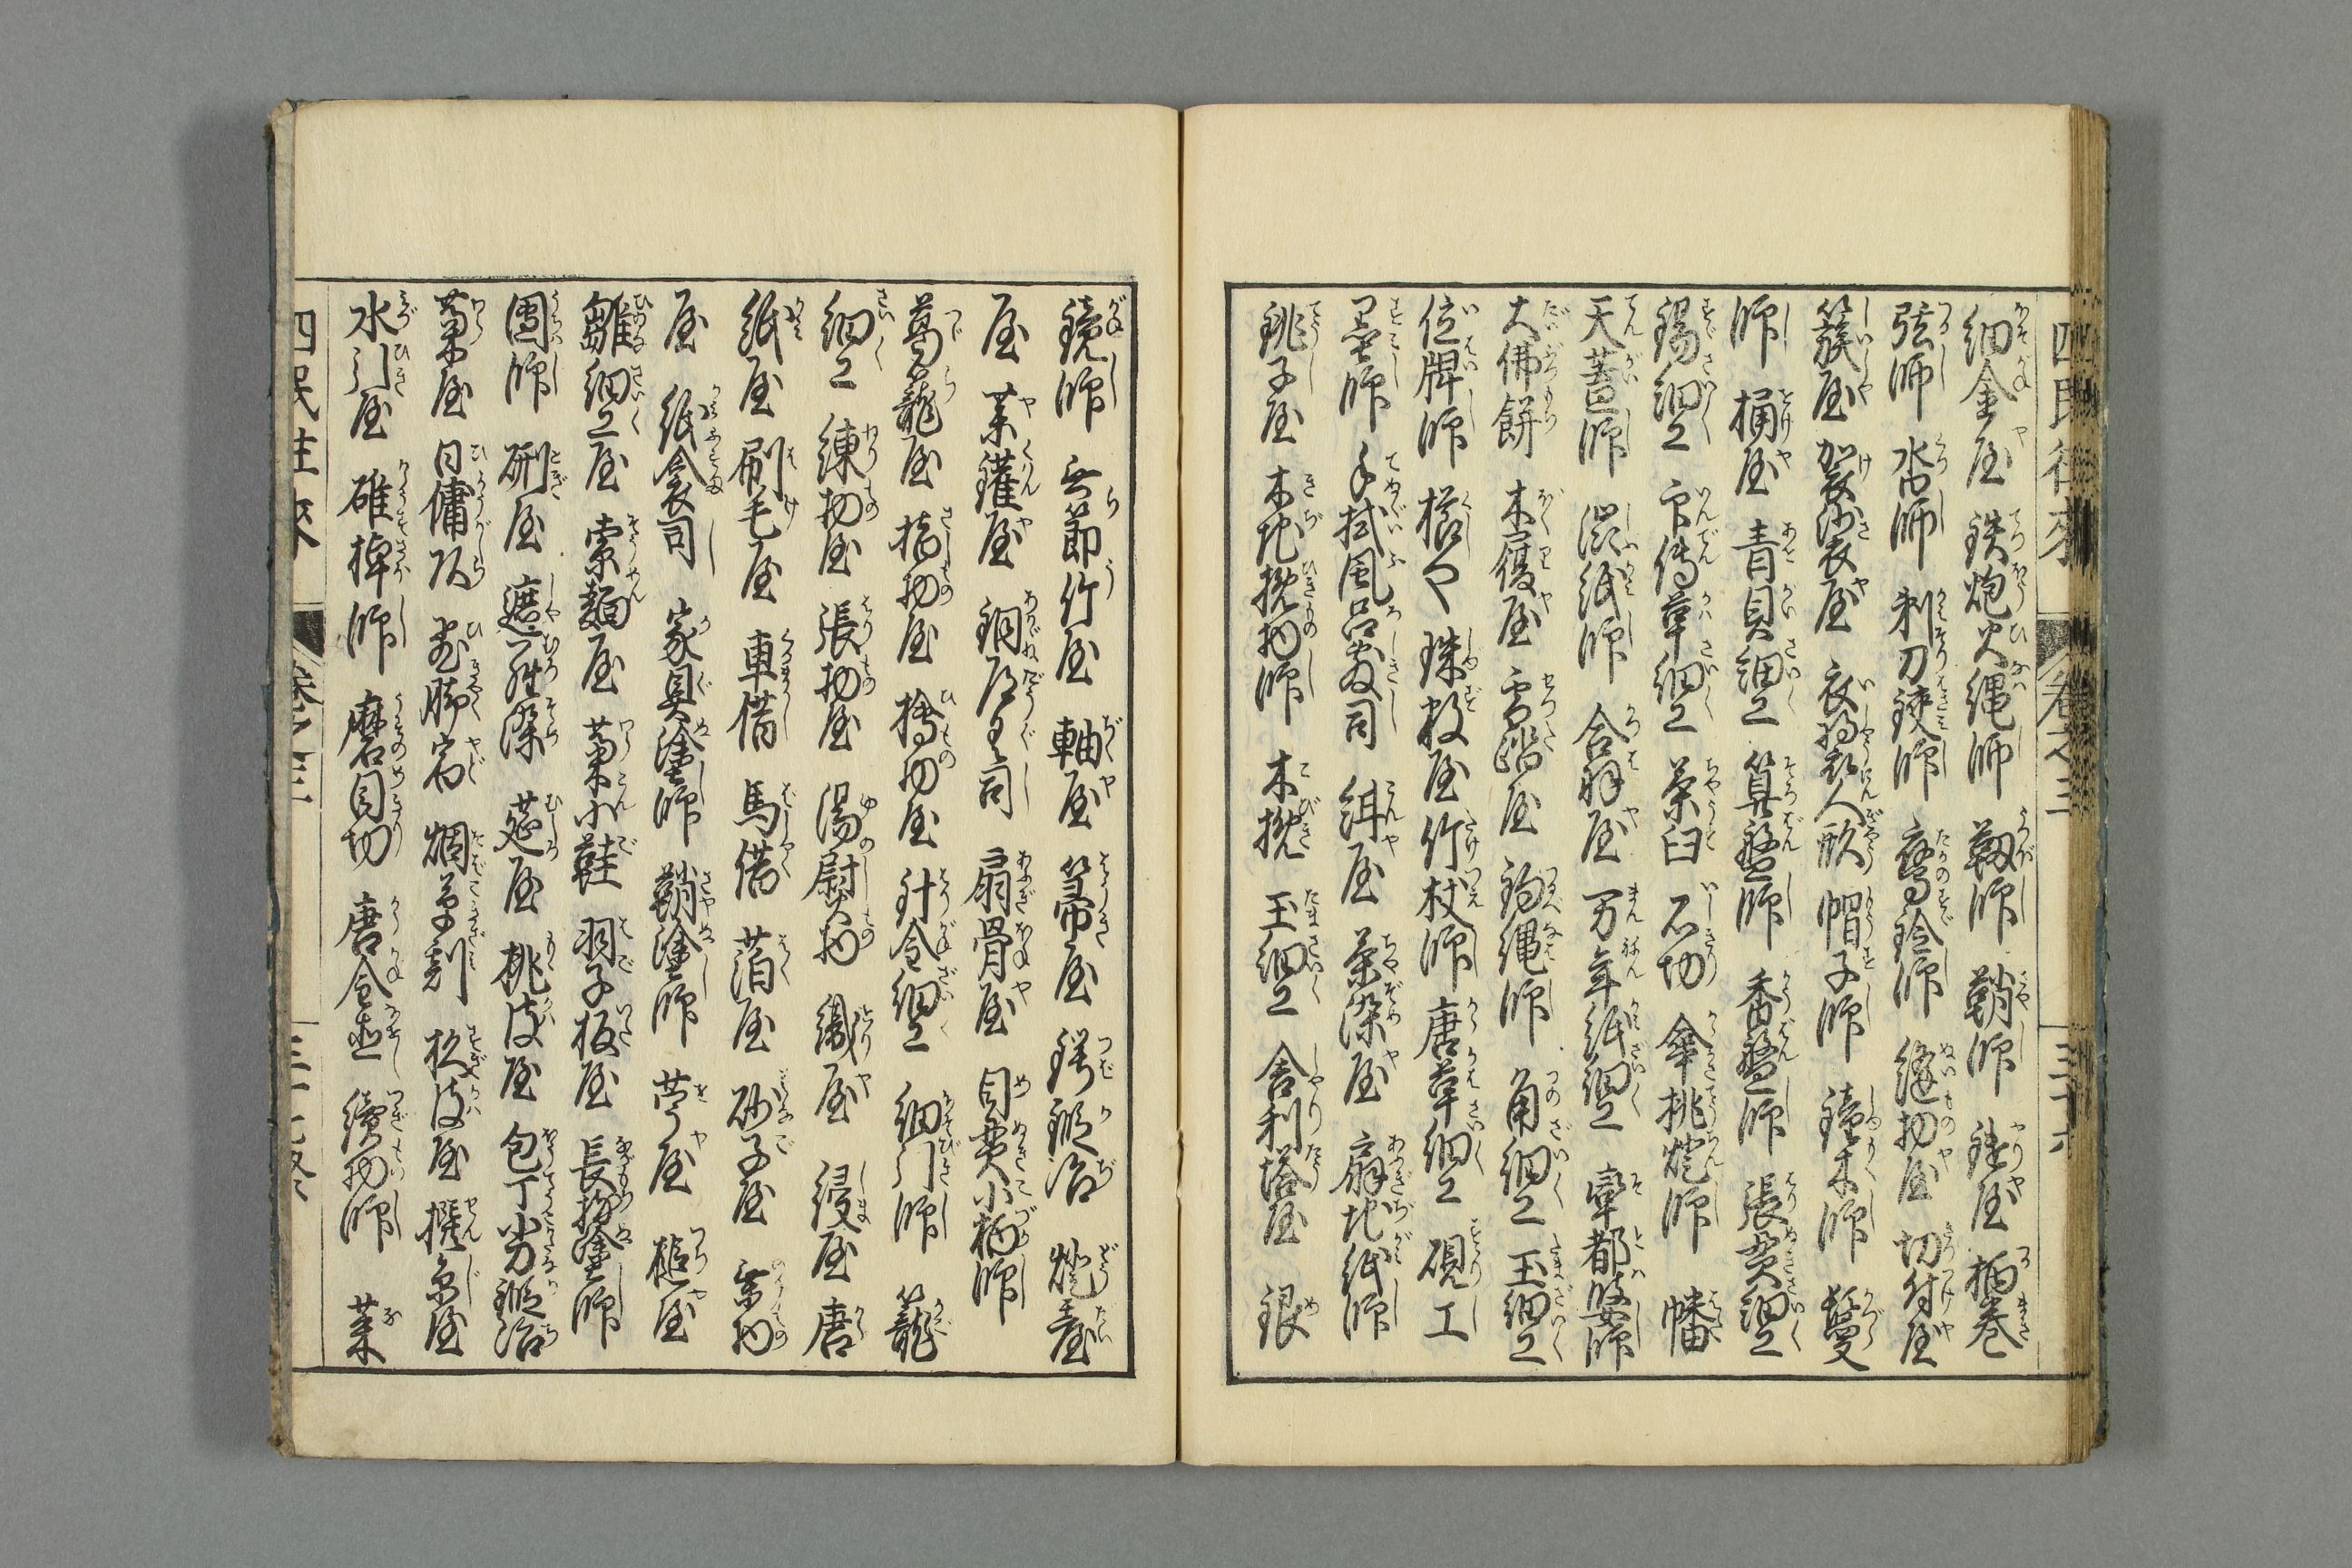 四民往来 巻之三 三十六
細金屋 鉄炮火縄師 靱師 鞘師 鑓屋 柄巻
弦師 沓師 剃刀鋏師 鷹鈴師 縫物屋 切付屋
簇屋 袈裟衣屋 衣裳人形 帽子師 鐘木師 鬘
師 桶屋 青貝細工 算盤師 香盤師 張貫細工
錫細工 印傳革細工 茶臼 石切 傘挑灯師 幡
天蓋師 渋紙師 合羽屋 万年紙細工 卒都婆師
大佛餅 木履屋 雪踏屋 釣縄師 角細工 玉細工
位牌師 櫛や 珠数屋 竹杖師 唐革細工 硯工
墨師 手拭風呂敷司 紺屋 茶染屋 扇地紙師
銚子屋 木地挽物師 木挽 玉細工 舎利塔屋 眼
鏡師 無節竹屋 軸屋 箒屋 鍔鍛冶 燈臺
屋 薬鑵屋 銅道具司 扇骨屋 目貫小柄師
葛籠屋 指物屋 檜物屋 針金細工 細引師 籠
細工 練物屋 張物屋 湯熨物 織屋 縞屋 唐
紙屋 刷毛屋 車借 馬借 箔屋 砂子屋 糸物
屋 紙衾司 家具塗師 鞘塗師 苧屋 槌屋
雛細工屋 索麺屋 藁小鞋 羽子板屋 長持塗師
團師 研屋 遮莫染 莚屋 桃皮屋 包丁小刀鍛冶
藁屋 日傭頭 飛脚宿 烟草刻 杉皮屋 撰糸屋
水引屋 碓挊師 磨目切 唐金直 續物師 菜
四民往来 巻之三 三十七終